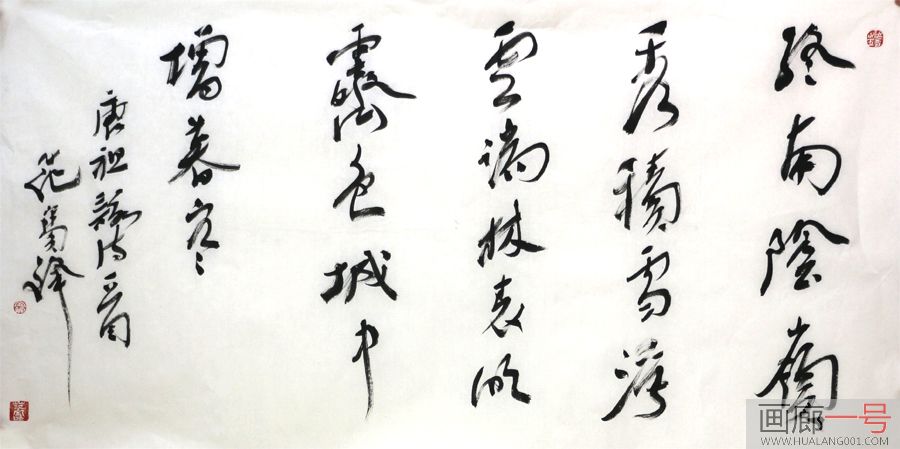 終南陰嶺
秀積雪浮
雲端林表明
霽色城中
增暮寒
唐祖詠詩一首
范
画廊一号
WWW.HUALANG001.COM